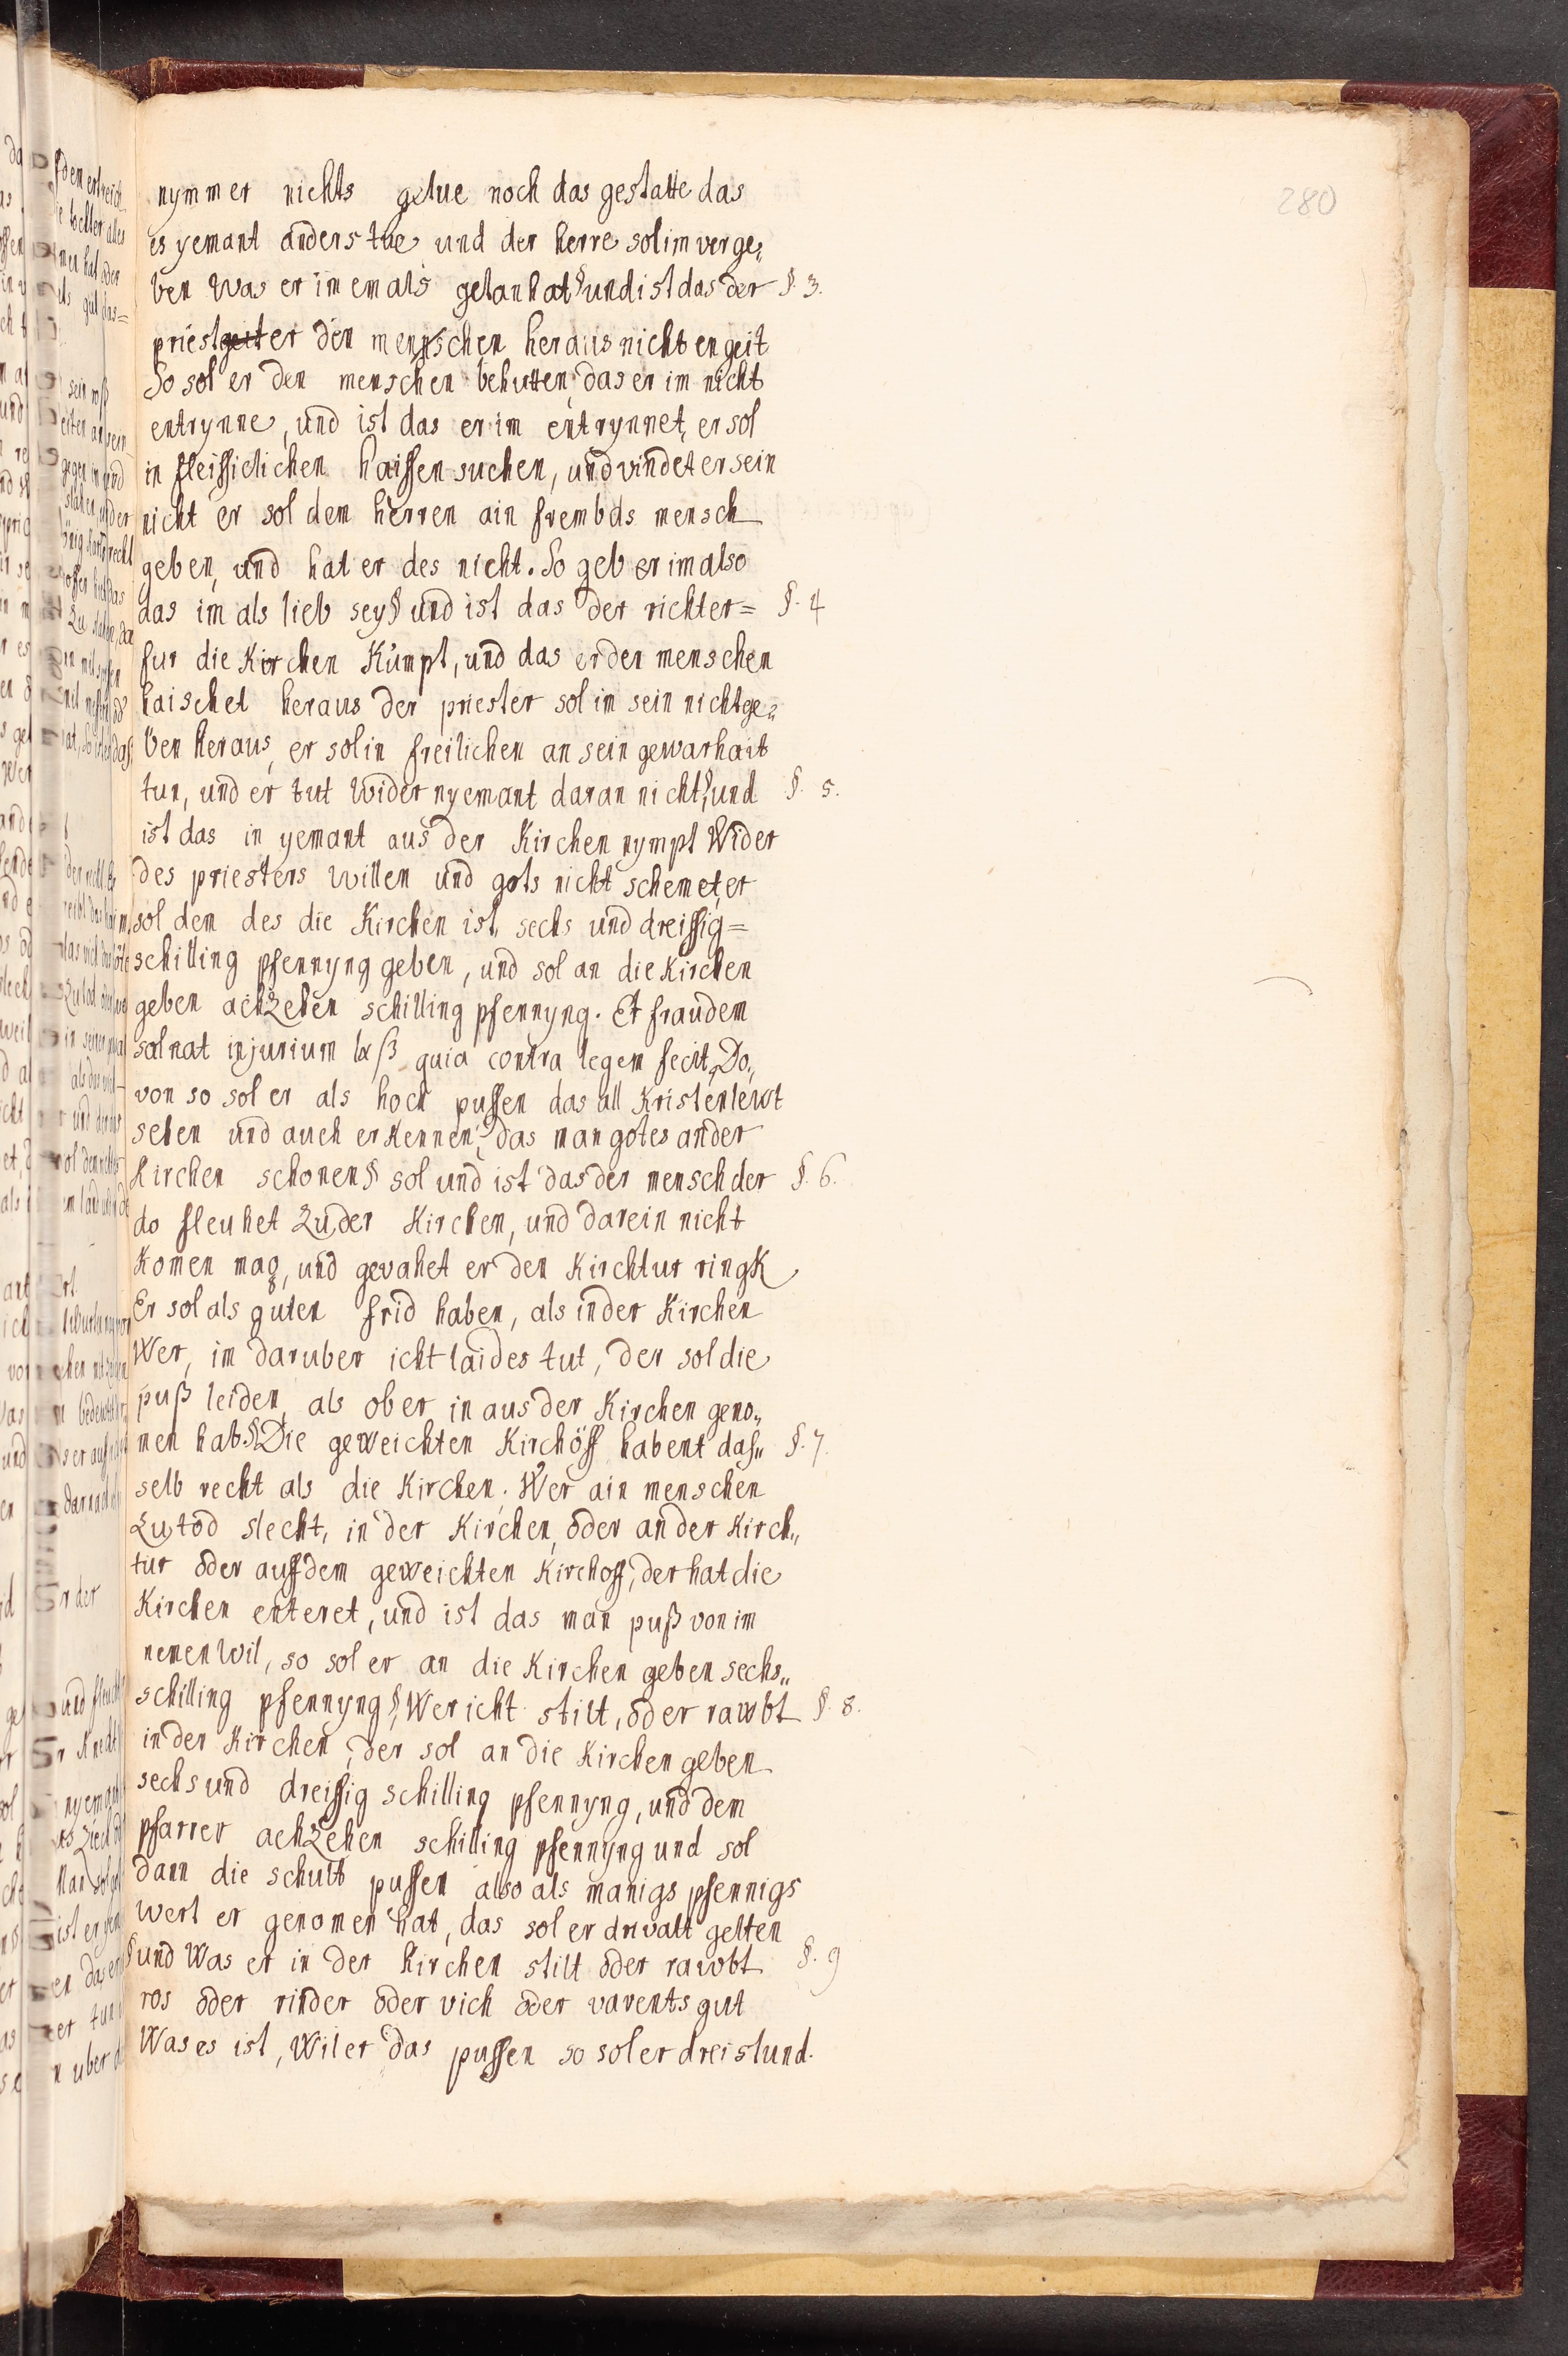 280
nymmer nichts getue noch das gestatte das
es yemant anders tue und der herre sol im verge,
ben was er im emals getan hat § und ist das der §. 3.
priestgeiter den mennschen heraus nicht engeit
So sol er den menschen behutten, das er im nicht
entrynne, und ist das er im entrynnet, er sol
in fleissiclichen haissen suchen, und vindet er sein
nicht er sol dem herren ain frembds mensch
geben, und hat er des nicht. So geb er im also
das im als lieb sey § und ist das der richter= §. 4
fur die Kirchen Kumpt, und das er den menschen
haischet heraus der priester sol im sein nicht ge,
ben heraus, er sol in freilichen an sein gewarhait
tun, und er tut wider nyemant daran nicht, § und §. 5.
ist das in yemant aus der Kirchen nympt wider
des priesters willen und gots nicht schemet, er
sol dem des die Kirchen ist, sechs und dreissig=
schilling pfennyng geben, und sol an die Kirchen
geben achzehen schilling pfennyng. Et fraudem
salnat injurium lxß quia contra legem fecit, Do,,
von so sol er als hoch pussen das all Kristenlewt
sehen und auch erkennen, das man gotes ander
Kirchen schonen § sol und ist das der mensch der §. 6.
do fleuhet zu der Kirchen, und darein nicht
Komen mag, und gevahet er den Kirchtur ringk
Er sol als guten frid haben, als in der Kirchen
Wer, im daruber icht laides tut, der sol die
puß leiden, als ob er in aus der Kirchen geno,,
men hab § Die geweichten Kirchöff habent das,, §. 7.
selb recht als die Kirchen. Wer ain menschen
zu tod slecht, in der Kirchen, oder an der Kirch,,
tur oder auff dem geweichten Kirchoff, der hat die
Kirchen enteret, und ist das man puß von im
nemen wil, so sol er an die Kirchen geben sechs,,
schilling pfennyng §, Wer icht stilt, oder rawbt §. 8.
in der Kirchen, der sol an die Kirchen geben
sechs und dreissig schilling pfennyng, und dem
pfarrer achzehen schilling pfennyng und sol
dann die schult pussen also als manigs pfennigs
wert er genomen hat, das sol er drivalt gelten
§ und Was er in der Kirchen stilt oder rawbt §. 9
ros oder rinder oder vich oder varents gut
Was es ist, Wil er das pussen so sol er dreistund.